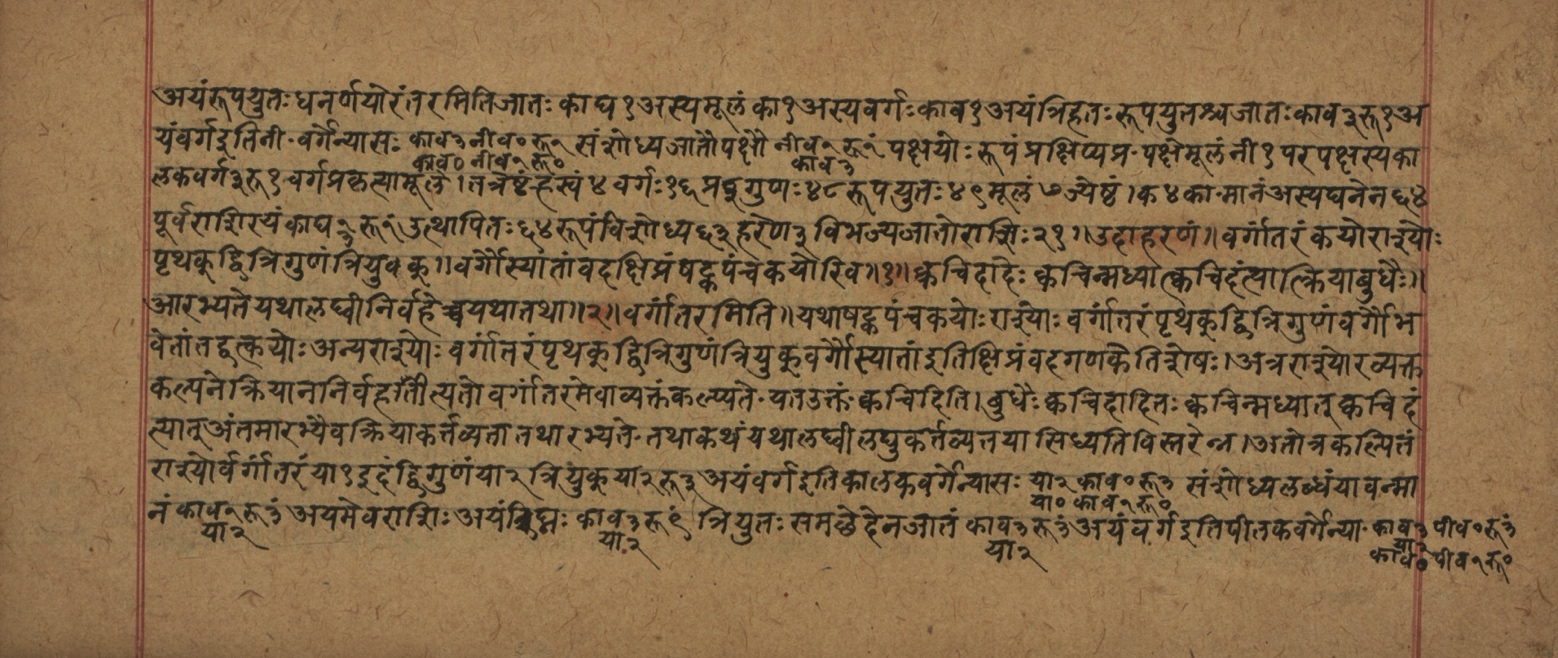 अयंरूपयुतःधनर्णयोरंतरमितिजातः काघ १ अस्यमूलंका १ अस्यवर्गः काव १ अयंत्रिहतः रूपयुतश्चजातः काव ३ रू १ अ
यंवर्गइतिनी॰वर्गेन्यासः काव ३ नीव ० रू १ संशोध्यजातौपक्षौ नीव १ रू १ं पक्षयोः रूपंप्रक्षिप्यप्र॰पक्षेमूलंनी १ परपक्षस्यका
काव ० नीव १ रू ० काव ३
लकवर्ग ३ रू १ वर्गप्रकृत्यामूले । तत्रेष्टंह्रस्वं ४ वर्गः १६ प्रकृगुणः ४८ रूपयुतः ४९ मूलं ७ ज्येष्ठं । क ४ का॰मानंअस्यघनेन ६४
पूर्वराशिस्यंकाघ १ रू १ं उत्थापितः ६४ रूपंविशोध्य ६३ हरेण ३ विभज्यजातोराशिः २१ ॥ उदाहरणं ॥ वर्गांतरंकयोराश्योः
पृथकृद्वित्रिगुणंत्रियुक्कृ ॥ वर्गौस्यातांवदक्षिप्रंषट्कपंचकयोरिव ॥ १ ॥ क्वचिदादेः क्वचिन्मध्यात्क्वचिदंत्यात्क्रियाबुधैः ॥
आरभ्यतेयथालघ्वीनिर्वहेच्चयथातथा ॥ २ ॥ वर्गांतरमिति ॥ यथाषट्कपंचकयोः राश्योः वर्गांतरंपृथकृद्वित्रिगुणंवर्गौभ
वेतांतद्वत्कयोः अन्यराश्योः वर्गांतरंपृथकृद्वित्रिगुणंत्रियुकृवर्गौस्यातांइतिक्षिप्रंवदगणकेतिशेषः । अत्रराश्योरव्यक्त
कल्पनेक्रियाननिर्वहातीत्यतोवर्गांतरमेवाव्यक्तंकल्प्यते॰यतउक्तं॰क्वचिदिति । बुधैः क्वचिदादितः क्वचिन्मध्यात् क्वचिदं
त्यात्अंतमारभ्यैवक्रियाकर्त्तव्यतातथारभ्यते॰तथाकथंयथालघ्वीलघुकर्त्तव्यतयासिध्यतिविस्तरेन्न । अतोत्रकल्पितं
राश्योर्वर्गांतरंया १ इदंद्विगुणंया २ त्रियुकृया २ रू ३ अयंवर्गइतिकालकवर्गेन्यासः या २ काव ० रू ३ संशोध्यलब्धंयावन्मा
या ० काव १ रू ०
नं काव १ रू ३ं अयमेवराशिः अयंत्रिघ्नः काव ३ रू ९ं त्रियुतः समछेदेनजातं काव ३ रू ३ं अयंवर्गइतिपीतकवर्गेन्या॰ काव ३ पीव ० रू ३ं
या २ या २ या २ या २
काव ० पीव १ रू ०